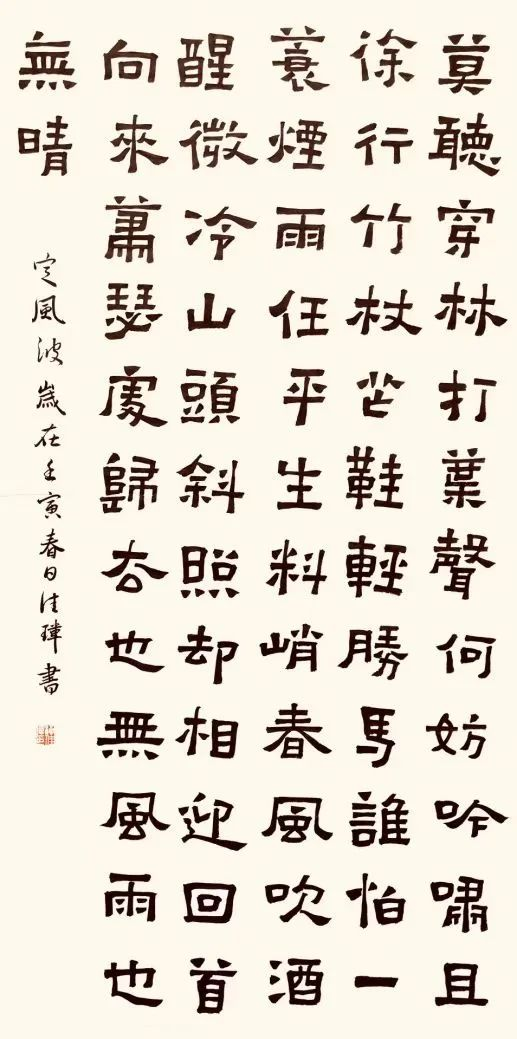 莫聽穿林打葉聲何妨吟嘯且
徐行竹杖芒鞋輕勝馬誰怕一
蓑煙雨任平生料峭春風吹酒
醒微冷山頭斜照却相迎回首
向來蕭瑟處歸去也無風雨也
無晴
定風波歲在壬寅春日書